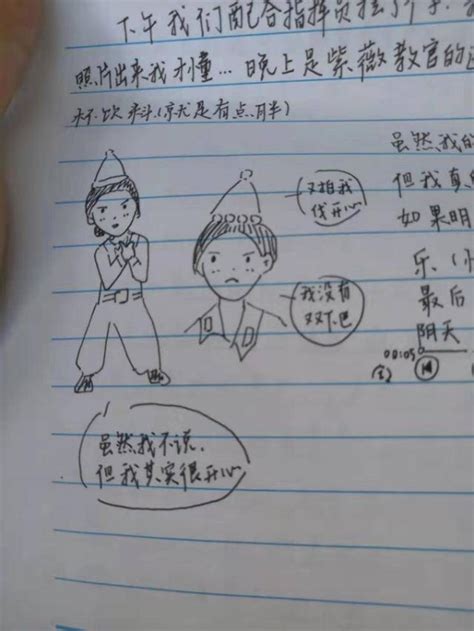 下午我们配合指挥员拉了个手
照片出来我才懂…晚上是紫薇教官的
杯饮料(就是有点胖)
虽然我的
但我真的
如果明
乐
最后
阴天
00:05
又拍我
开心
我没有
双下巴
虽然我不说,
但我其实很开心